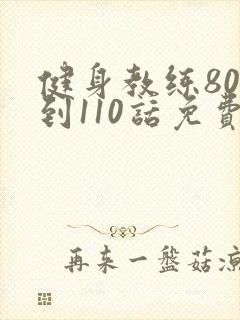 健身教练80
到110話免費
再来一盤菇凉